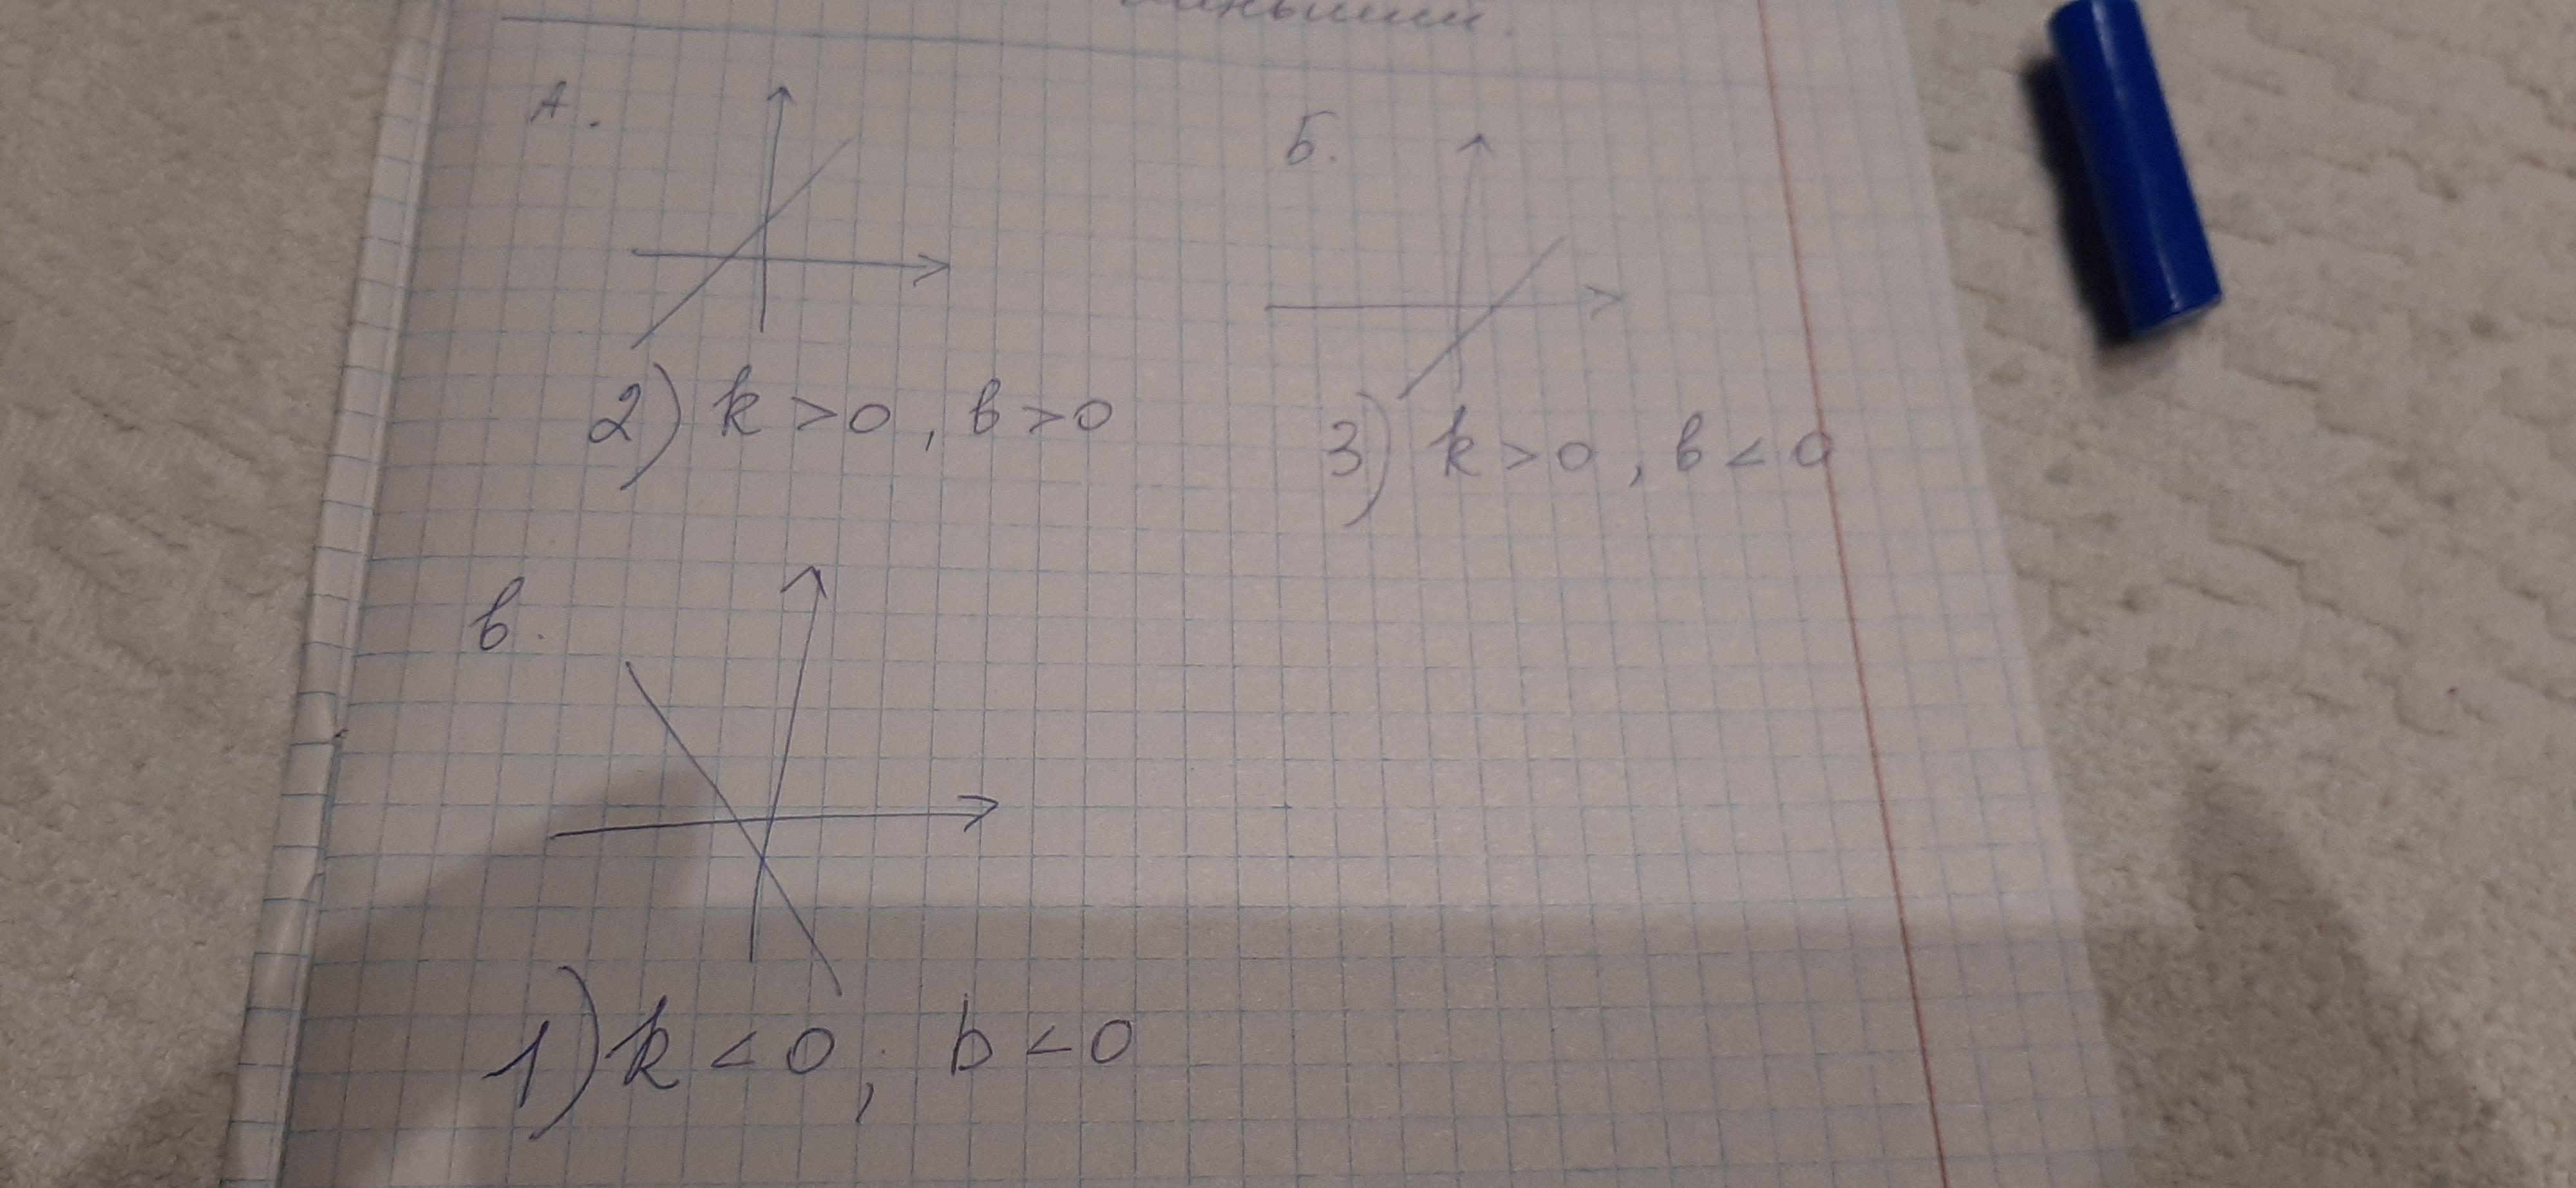 А. Б.
2) k > 0, b > 0 3) k > 0, b < 0
В.
1) k < 0; b < 0